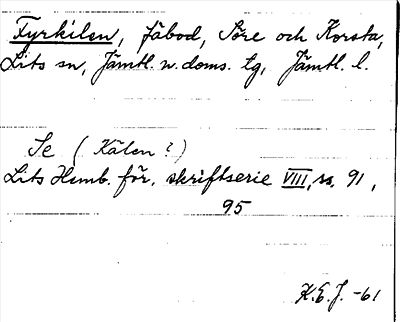 Fyrkilen, fäbod, Söre och Korsta,
Lits sn, Jämtl. n. doms. tg, Jämtl. l.
Se (Kälen?)
Lits Hemb. för. skriftserie VIII, ss. 91,
95
K.E.J. -61